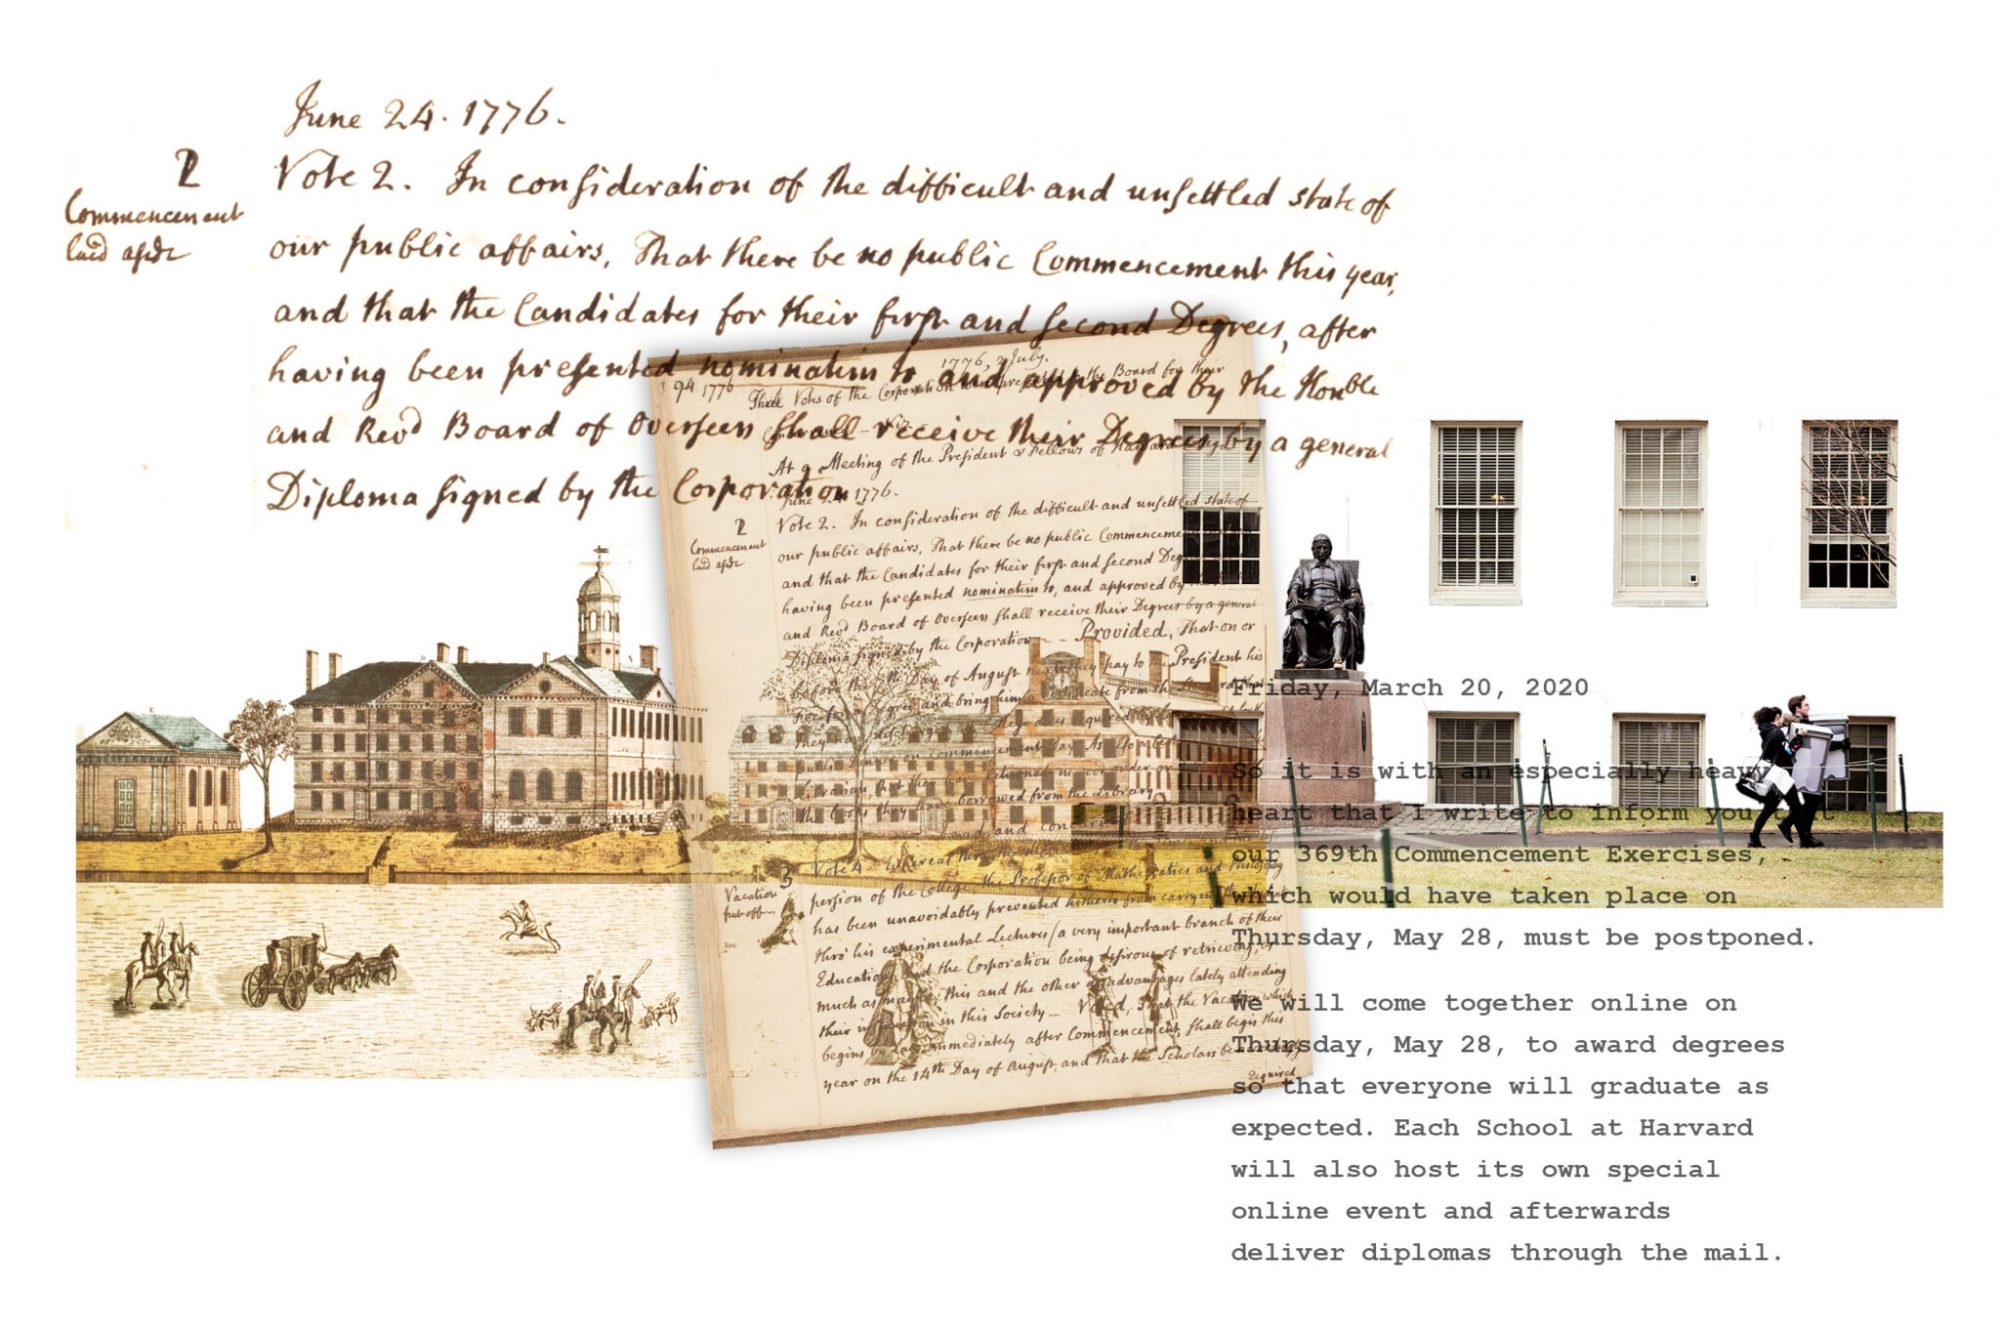 June 24. 1776.
2
Commencement
laid aside
Vote 2. In consideration of the difficult and unsettled state of
our public affairs, That there be no public Commencement this year,
and that the Candidates for their first and second Degrees, after
having been presented nomination to and approved by the Honble
and Revd Board of Overseers shall receive their Degrees by a general
Diploma signed by the Corporation
1776, 2 July.
94 1776
Three Votes of the Corporation to be presented to the Board for their
At a Meeting of the President & Fellows of Harvard
June 24 1776.
2
Commencement
laid aside
Vote 2. In consideration of the difficult and unsettled state of
our public affairs, That there be no public Commencement
and that the Candidates for their first and second Deg
having been presented nomination to, and approved by
and Revd Board of Overseers shall receive their Degrees by a general
Diploma signed by the Corporation — Provided, That on or
before the Day of August they pay to the President his
for Degree and bring him Certificate from the
they
Commencement day
that they have returned
the Books they have borrowed from the Library
3
Vacation
put off
Vote 4. Whereas the
persion of the College the Professor of Mathematics and Philosophy
has been unavoidably prevented hitherto from carrying
thro' his experimental Lectures (a very important branch of their
Education) and the Corporation being desirous of retrieving, as
much as may be, this and the other disadvantages lately attending
their in this Society — Voted, That the Vacation which
begins by Law immediately after Commencement, shall begin this
year on the 14th Day of August, and that the Scholars be
required
Friday, March 20, 2020
So it is with an especially heavy
heart that I write to inform you that
our 369th Commencement Exercises,
which would have taken place on
Thursday, May 28, must be postponed.
We will come together online on
Thursday, May 28, to award degrees
so that everyone will graduate as
expected. Each School at Harvard
will also host its own special
online event and afterwards
deliver diplomas through the mail.